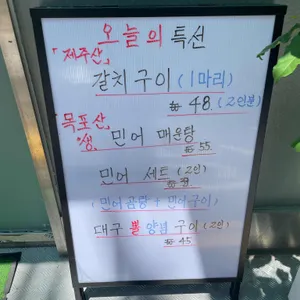 오늘의 특선
"제주산"
갈치구이 (1마리)
₩48. (2인분)
목포산,
"생" 민어 매운탕
₩55.
민어 세트 (2인)
(민어곰탕 + 민어구이)
대구 뽈 양념구이 (2인)
₩45